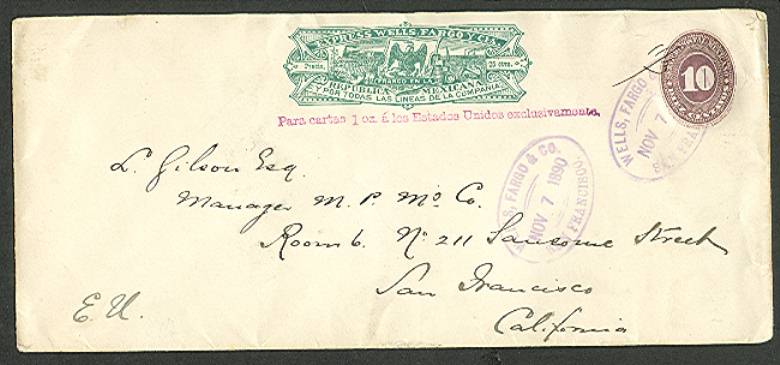 EXPRESS WELLS FARGO Y CIA.
Precio. 25 ctvs.
FRANCO EN LA
REPUBLICA MEXICANA
Y POR TODAS LAS LINEAS DE LA COMPAÑIA.
Para cartas 1 oz. á los Estados Unidos exclusivamente.
10
WELLS, FARGO &
NOV 7
SAN FRA
WELLS, FARGO & CO.
NOV 7 1890
SAN FRANCISCO.
L. Gilson Esq
Manager M. P. Mo Co.
Room 6. No 211 Sansome Street
San Francisco
California
E. U.